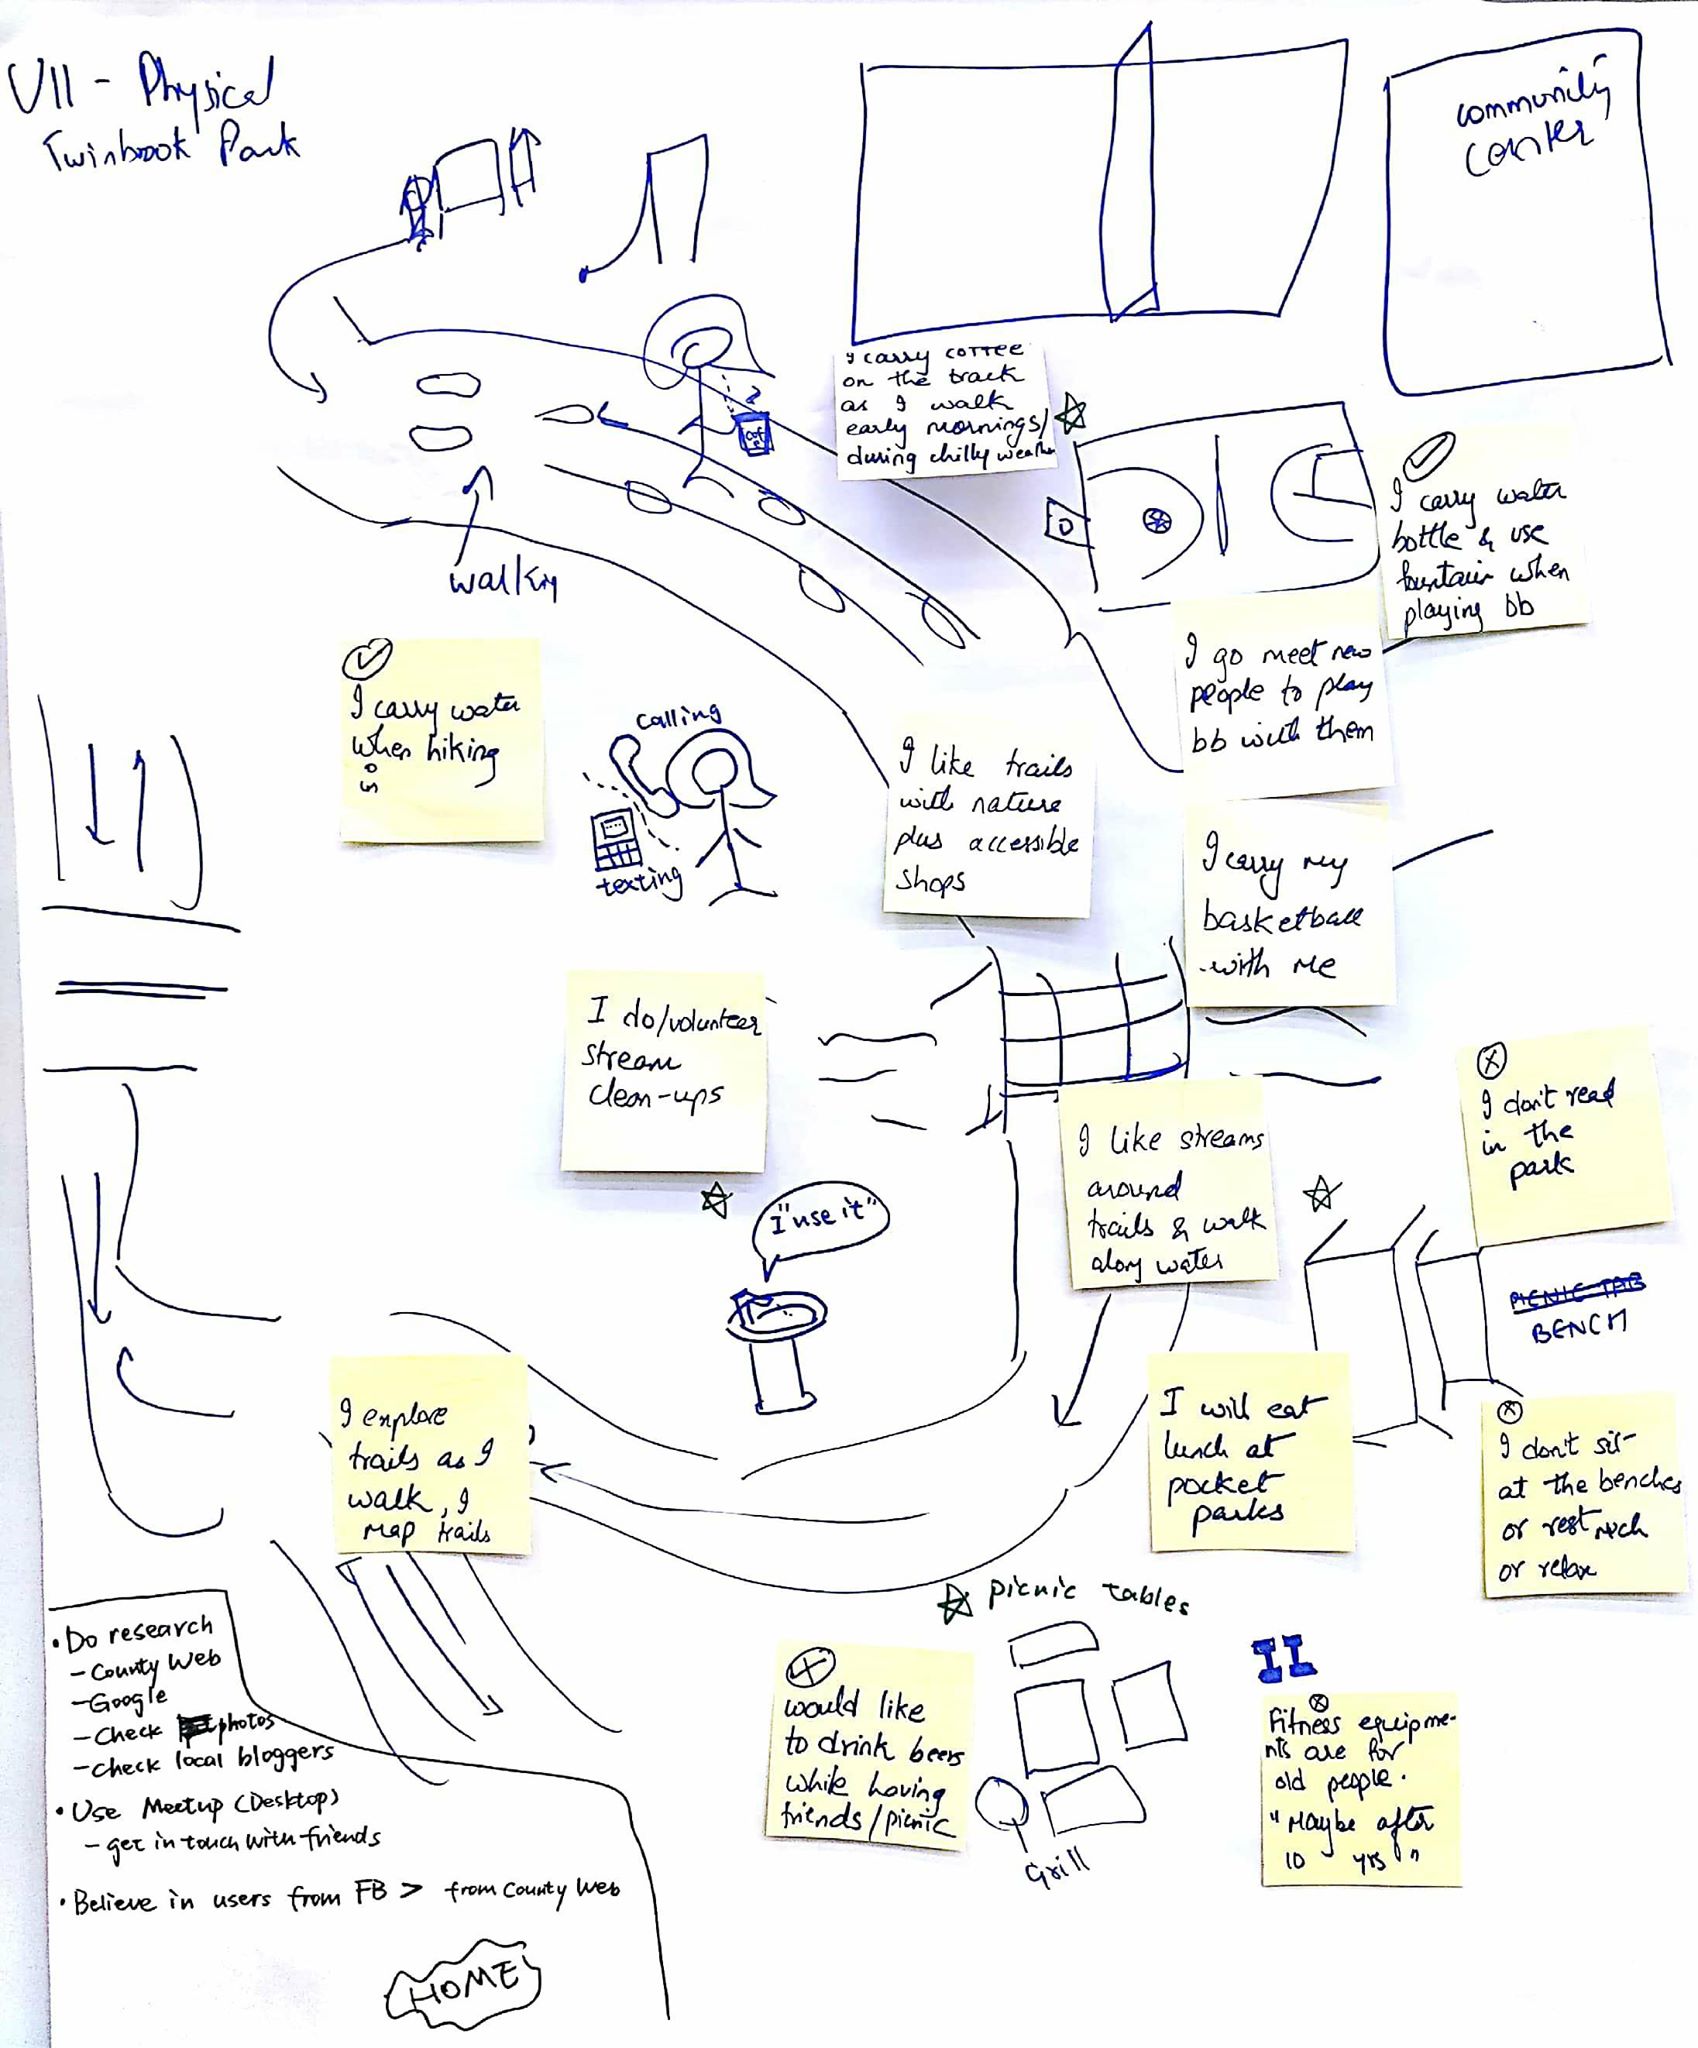 VII - Physical
Twinbrook Park
community
center
I carry coffee
on the track
as I walk
early mornings/
during chilly weather
I carry water
bottle & use
fountain when
playing bb
walking
I go meet new
people to play
bb with them
I carry water
when hiking
calling
texting
I like trails
with nature
plus accessible
shops
I carry my
basketball
with me
I do/volunteer
stream
clean-ups
I like streams
around
trails & walk
along water
I don't read
in the
park
I "use it"
PICNIC TAB
BENCH
I explore
trails as I
walk, I
map trails
I will eat
lunch at
pocket
parks
I don't sit
at the benches
or rest much
or relax
picnic tables
would like
to drink beers
while having
friends/picnic
Grill
Fitness equipme-
nts are for
old people.
"Maybe after
10 yrs"
• Do research
- County Web
- Google
- Check photos
- check local bloggers
• Use Meetup (Desktop)
- get in touch with friends
• Believe in users from FB > from County Web
HOME